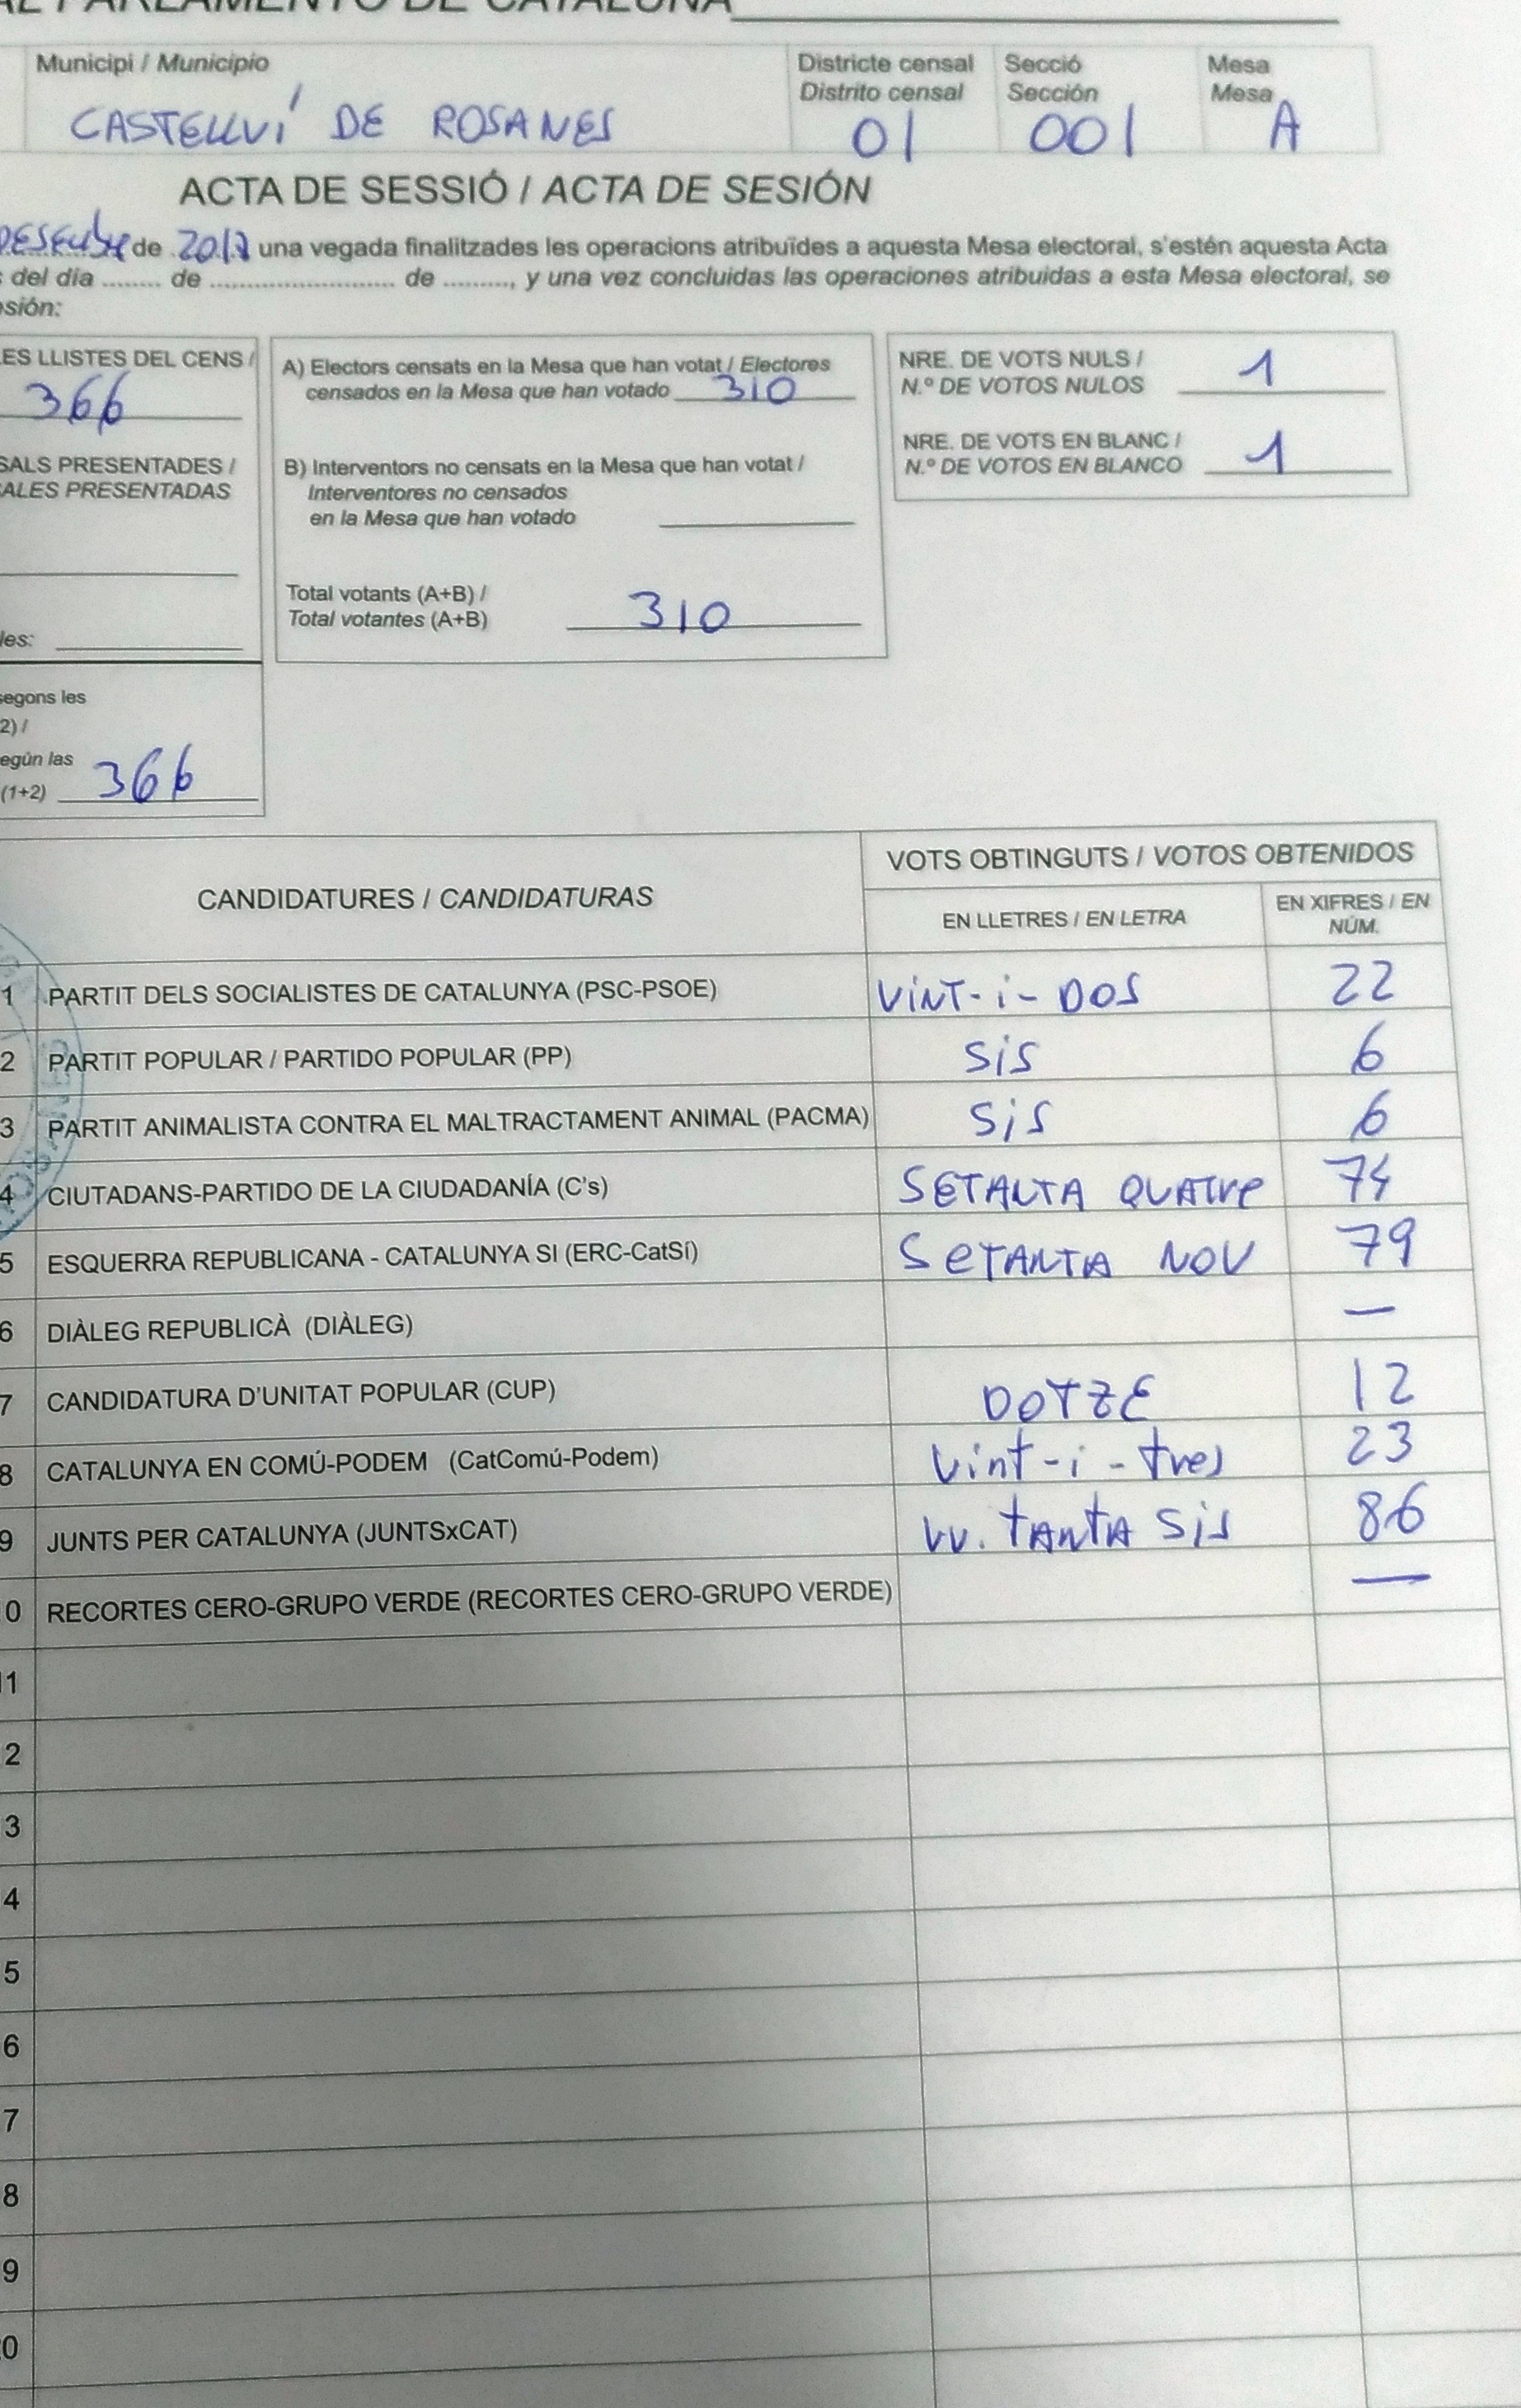 AL PARLAMENTO DE CATALUÑA
Municipi / Municipio
Districte censal
Distrito censal
Secció
Sección
Mesa
Mesa
CASTELLVÍ DE ROSANES
01
001
A
ACTA DE SESSIÓ / ACTA DE SESIÓN
de 2017 una vegada finalitzades les operacions atribuïdes a aquesta Mesa electoral, s'estén aquesta Acta
del día ........ de ........................ de ........., y una vez concluidas las operaciones atribuidas a esta Mesa electoral, se
sión:
ES LLISTES DEL CENS /
366
SALS PRESENTADES /
ALES PRESENTADAS
les:
segons les
2) /
egún las
(1+2) 366
A) Electors censats en la Mesa que han votat / Electores
censados en la Mesa que han votado 310
B) Interventors no censats en la Mesa que han votat /
Interventores no censados
en la Mesa que han votado
Total votants (A+B) /
Total votantes (A+B) 310
NRE. DE VOTS NULS /
N.º DE VOTOS NULOS 1
NRE. DE VOTS EN BLANC /
N.º DE VOTOS EN BLANCO 1
CANDIDATURES / CANDIDATURAS
VOTS OBTINGUTS / VOTOS OBTENIDOS
EN LLETRES / EN LETRA
EN XIFRES / EN
NÚM.
1 PARTIT DELS SOCIALISTES DE CATALUNYA (PSC-PSOE) ViNT-i-DOS 22
2 PARTIT POPULAR / PARTIDO POPULAR (PP) SiS 6
3 PARTIT ANIMALISTA CONTRA EL MALTRACTAMENT ANIMAL (PACMA) SiS 6
4 CIUTADANS-PARTIDO DE LA CIUDADANÍA (C's) SETANTA QUATre 74
5 ESQUERRA REPUBLICANA - CATALUNYA SI (ERC-CatSí) SeTANTA NOV 79
6 DIÀLEG REPUBLICÀ (DIÀLEG) —
7 CANDIDATURA D'UNITAT POPULAR (CUP) DOTZE 12
8 CATALUNYA EN COMÚ-PODEM (CatComú-Podem) Vint-i-tres 23
9 JUNTS PER CATALUNYA (JUNTSxCAT) VV. TANTA SiS 86
0 RECORTES CERO-GRUPO VERDE (RECORTES CERO-GRUPO VERDE) —
11
2
3
4
5
6
7
8
9
0